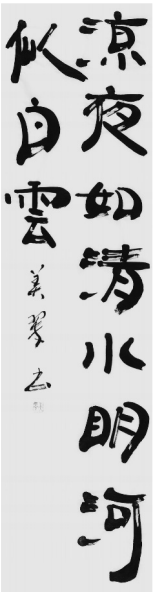 涼夜如清水明河
似白雲
美翠书